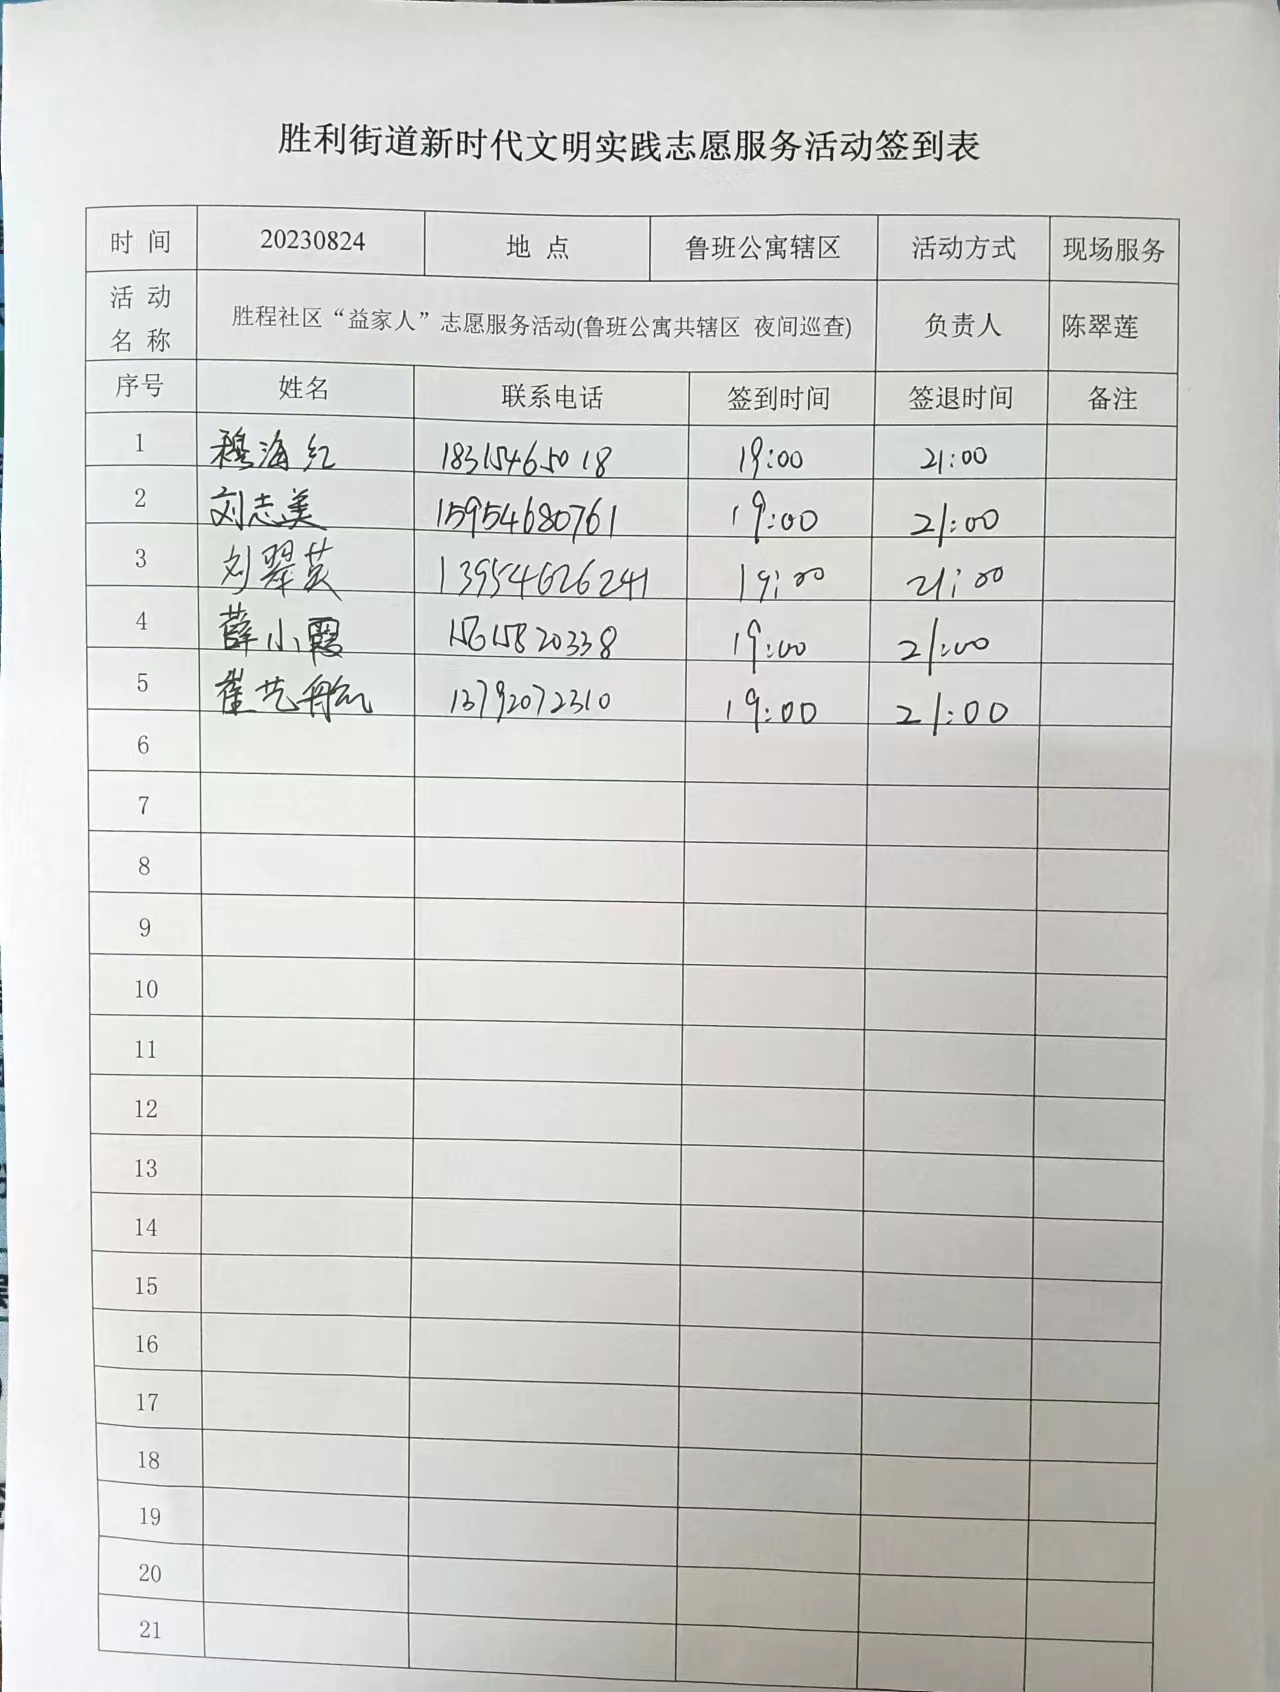 胜利街道新时代文明实践志愿服务活动签到表
时 间 20230824 地 点 鲁班公寓辖区 活动方式 现场服务
活 动
名 称 胜程社区“益家人”志愿服务活动(鲁班公寓共辖区 夜间巡查) 负责人 陈翠莲
序号 姓名 联系电话 签到时间 签退时间 备注
1 穆海红 18315465018 19:00 21:00
2 刘志美 15954680761 19:00 21:00
3 刘翠英 13954626241 19:00 21:00
4 薛小霞 15615820338 19:00 21:00
5 崔艺航 13792072310 19:00 21:00
6
7
8
9
10
11
12
13
14
15
16
17
18
19
20
21